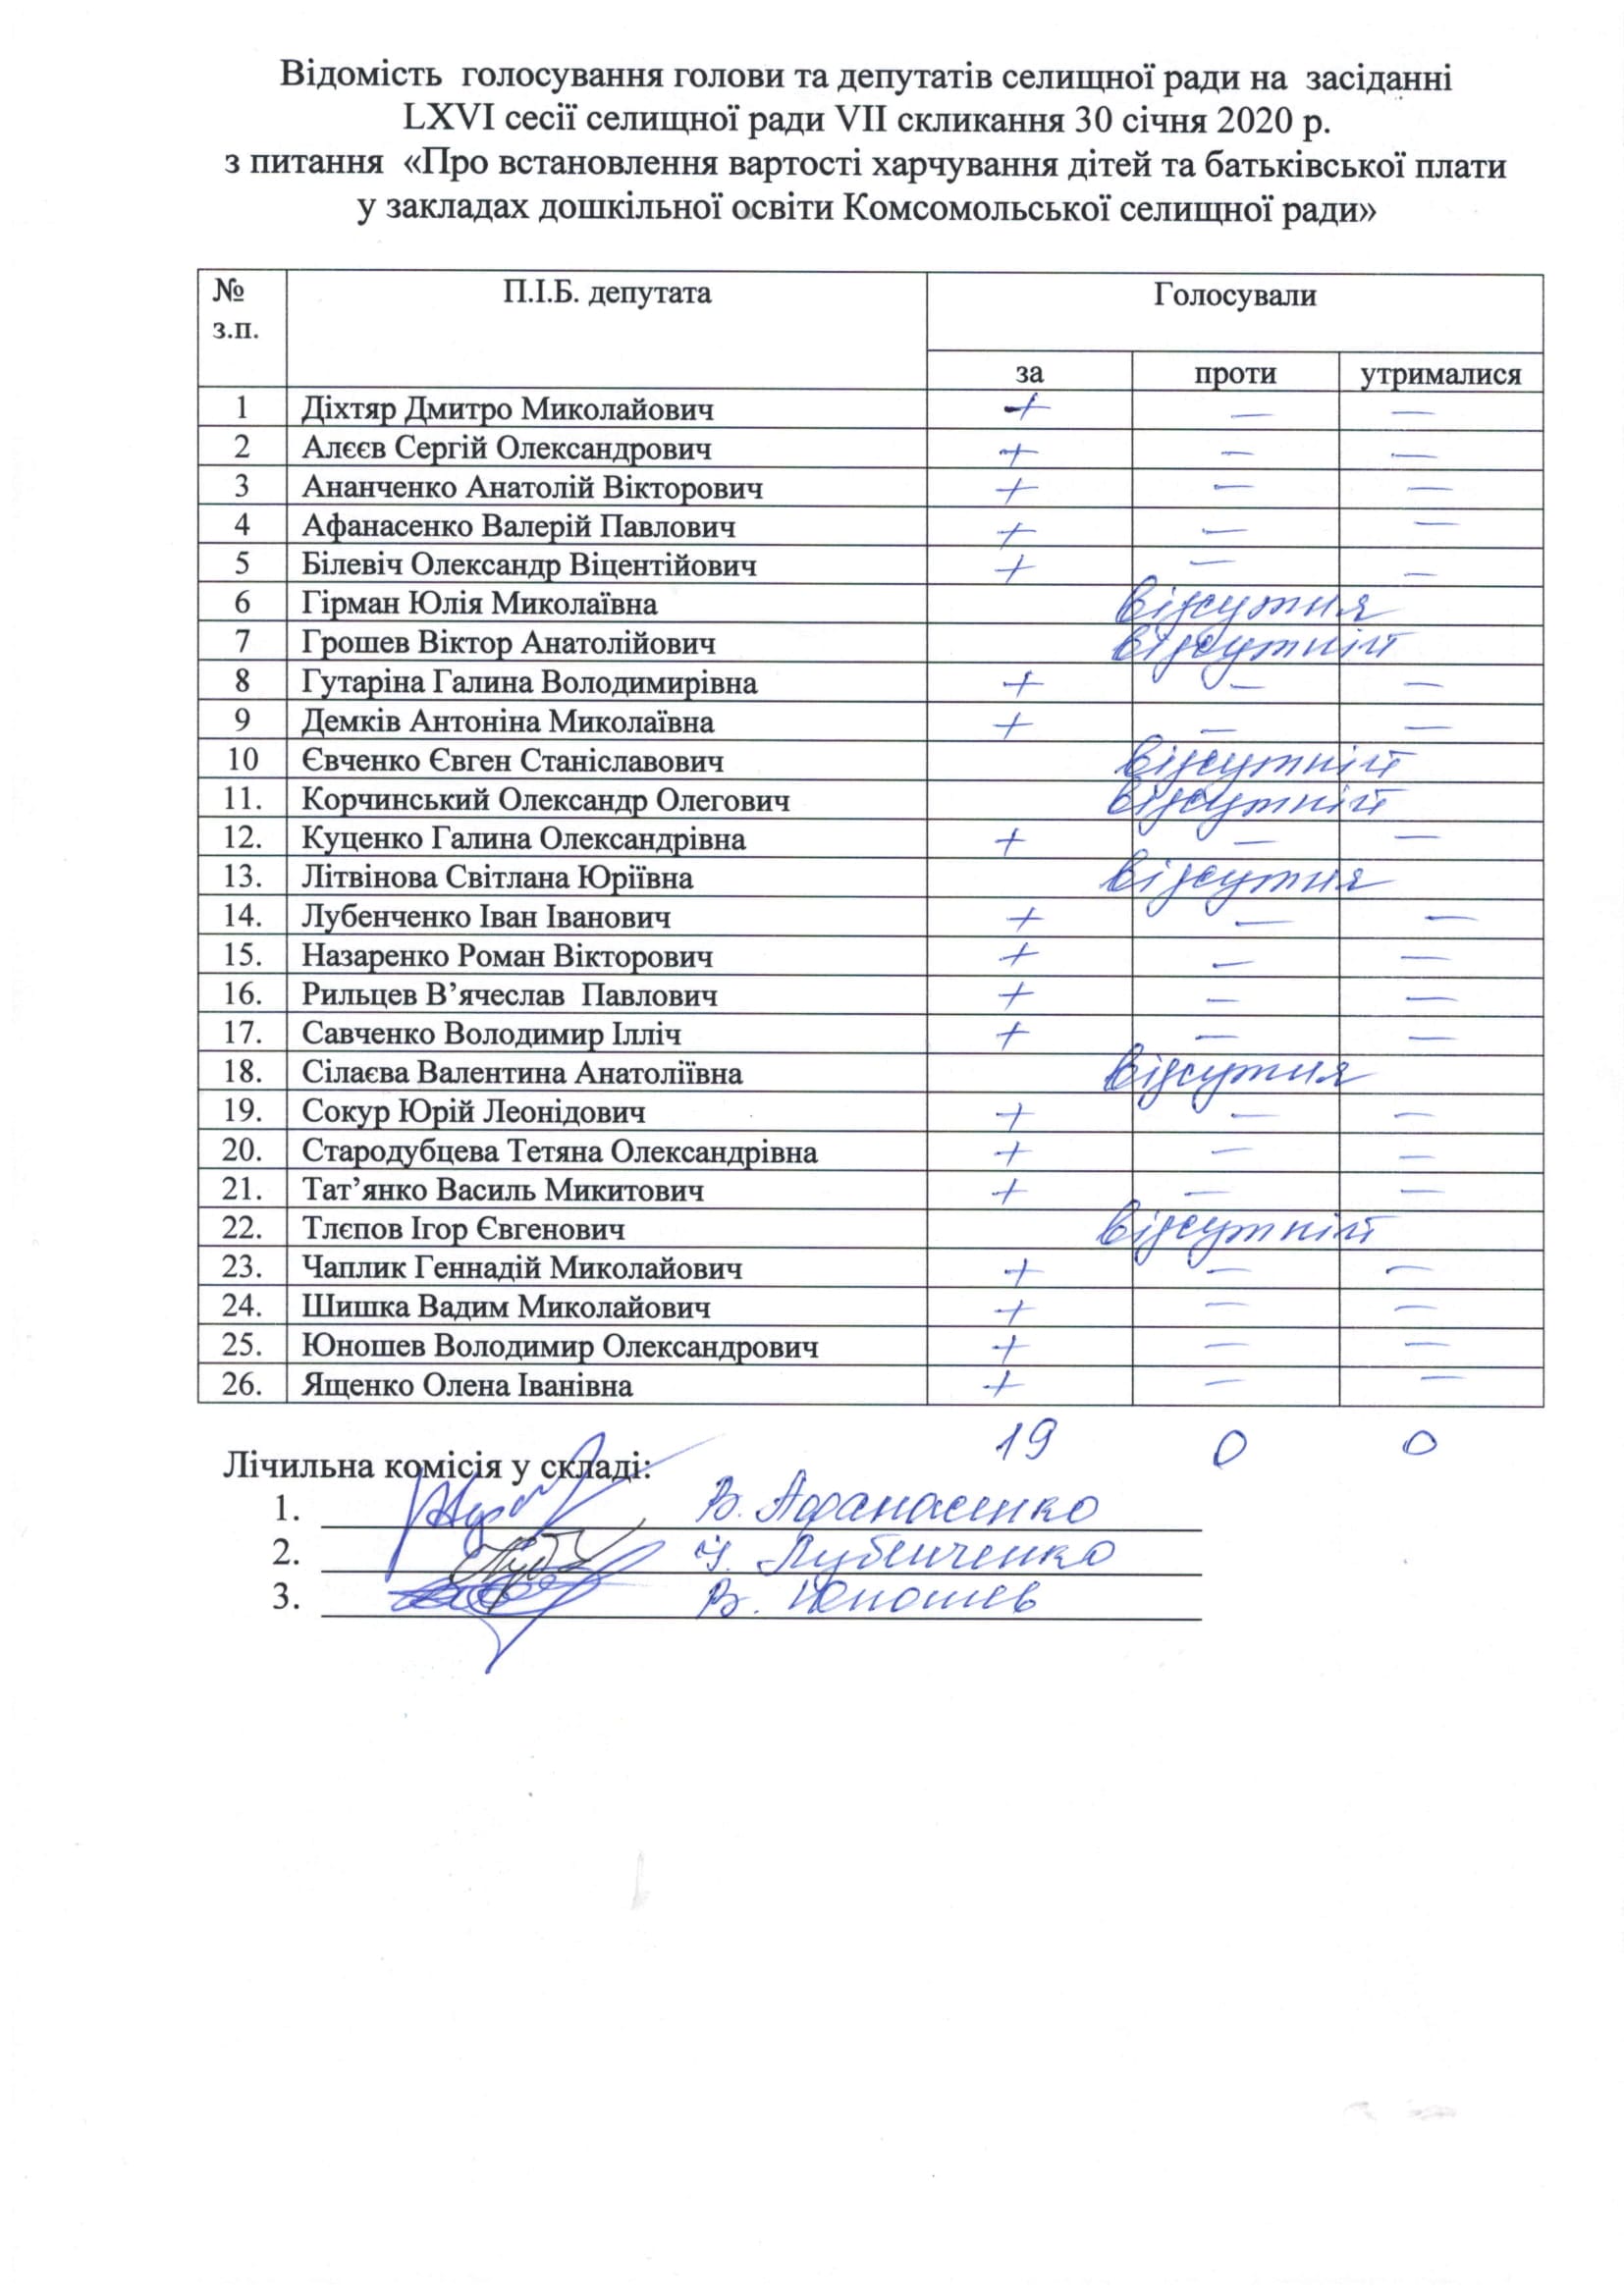 Відомість голосування голови та депутатів селищної ради на засіданні
LXVI сесії селищної ради VII скликання 30 січня 2020 р.
з питання «Про встановлення вартості харчування дітей та батьківської плати
у закладах дошкільної освіти Комсомольської селищної ради»
№ з.п. П.І.Б. депутата Голосували
за проти утрималися
1 Діхтяр Дмитро Миколайович + — —
2 Алєєв Сергій Олександрович + — —
3 Ананченко Анатолій Вікторович + — —
4 Афанасенко Валерій Павлович + — —
5 Білевіч Олександр Віцентійович + — —
6 Гірман Юлія Миколаївна відсутня
7 Грошев Віктор Анатолійович відсутній
8 Гутаріна Галина Володимирівна + — —
9 Демків Антоніна Миколаївна + — —
10 Євченко Євген Станіславович відсутній
11. Корчинський Олександр Олегович відсутній
12. Куценко Галина Олександрівна + — —
13. Літвінова Світлана Юріївна відсутня
14. Лубенченко Іван Іванович + — —
15. Назаренко Роман Вікторович + — —
16. Рильцев В’ячеслав Павлович + — —
17. Савченко Володимир Ілліч + — —
18. Сілаєва Валентина Анатоліївна відсутня
19. Сокур Юрій Леонідович + — —
20. Стародубцева Тетяна Олександрівна + — —
21. Тат’янко Василь Микитович + — —
22. Тлєпов Ігор Євгенович відсутній
23. Чаплик Геннадій Миколайович + — —
24. Шишка Вадим Миколайович + — —
25. Юношев Володимир Олександрович + — —
26. Ященко Олена Іванівна + — —
19 0 0
Лічильна комісія у складі:
1. В. Афанасенко
2. І. Лубенченко
3. В. Юношев